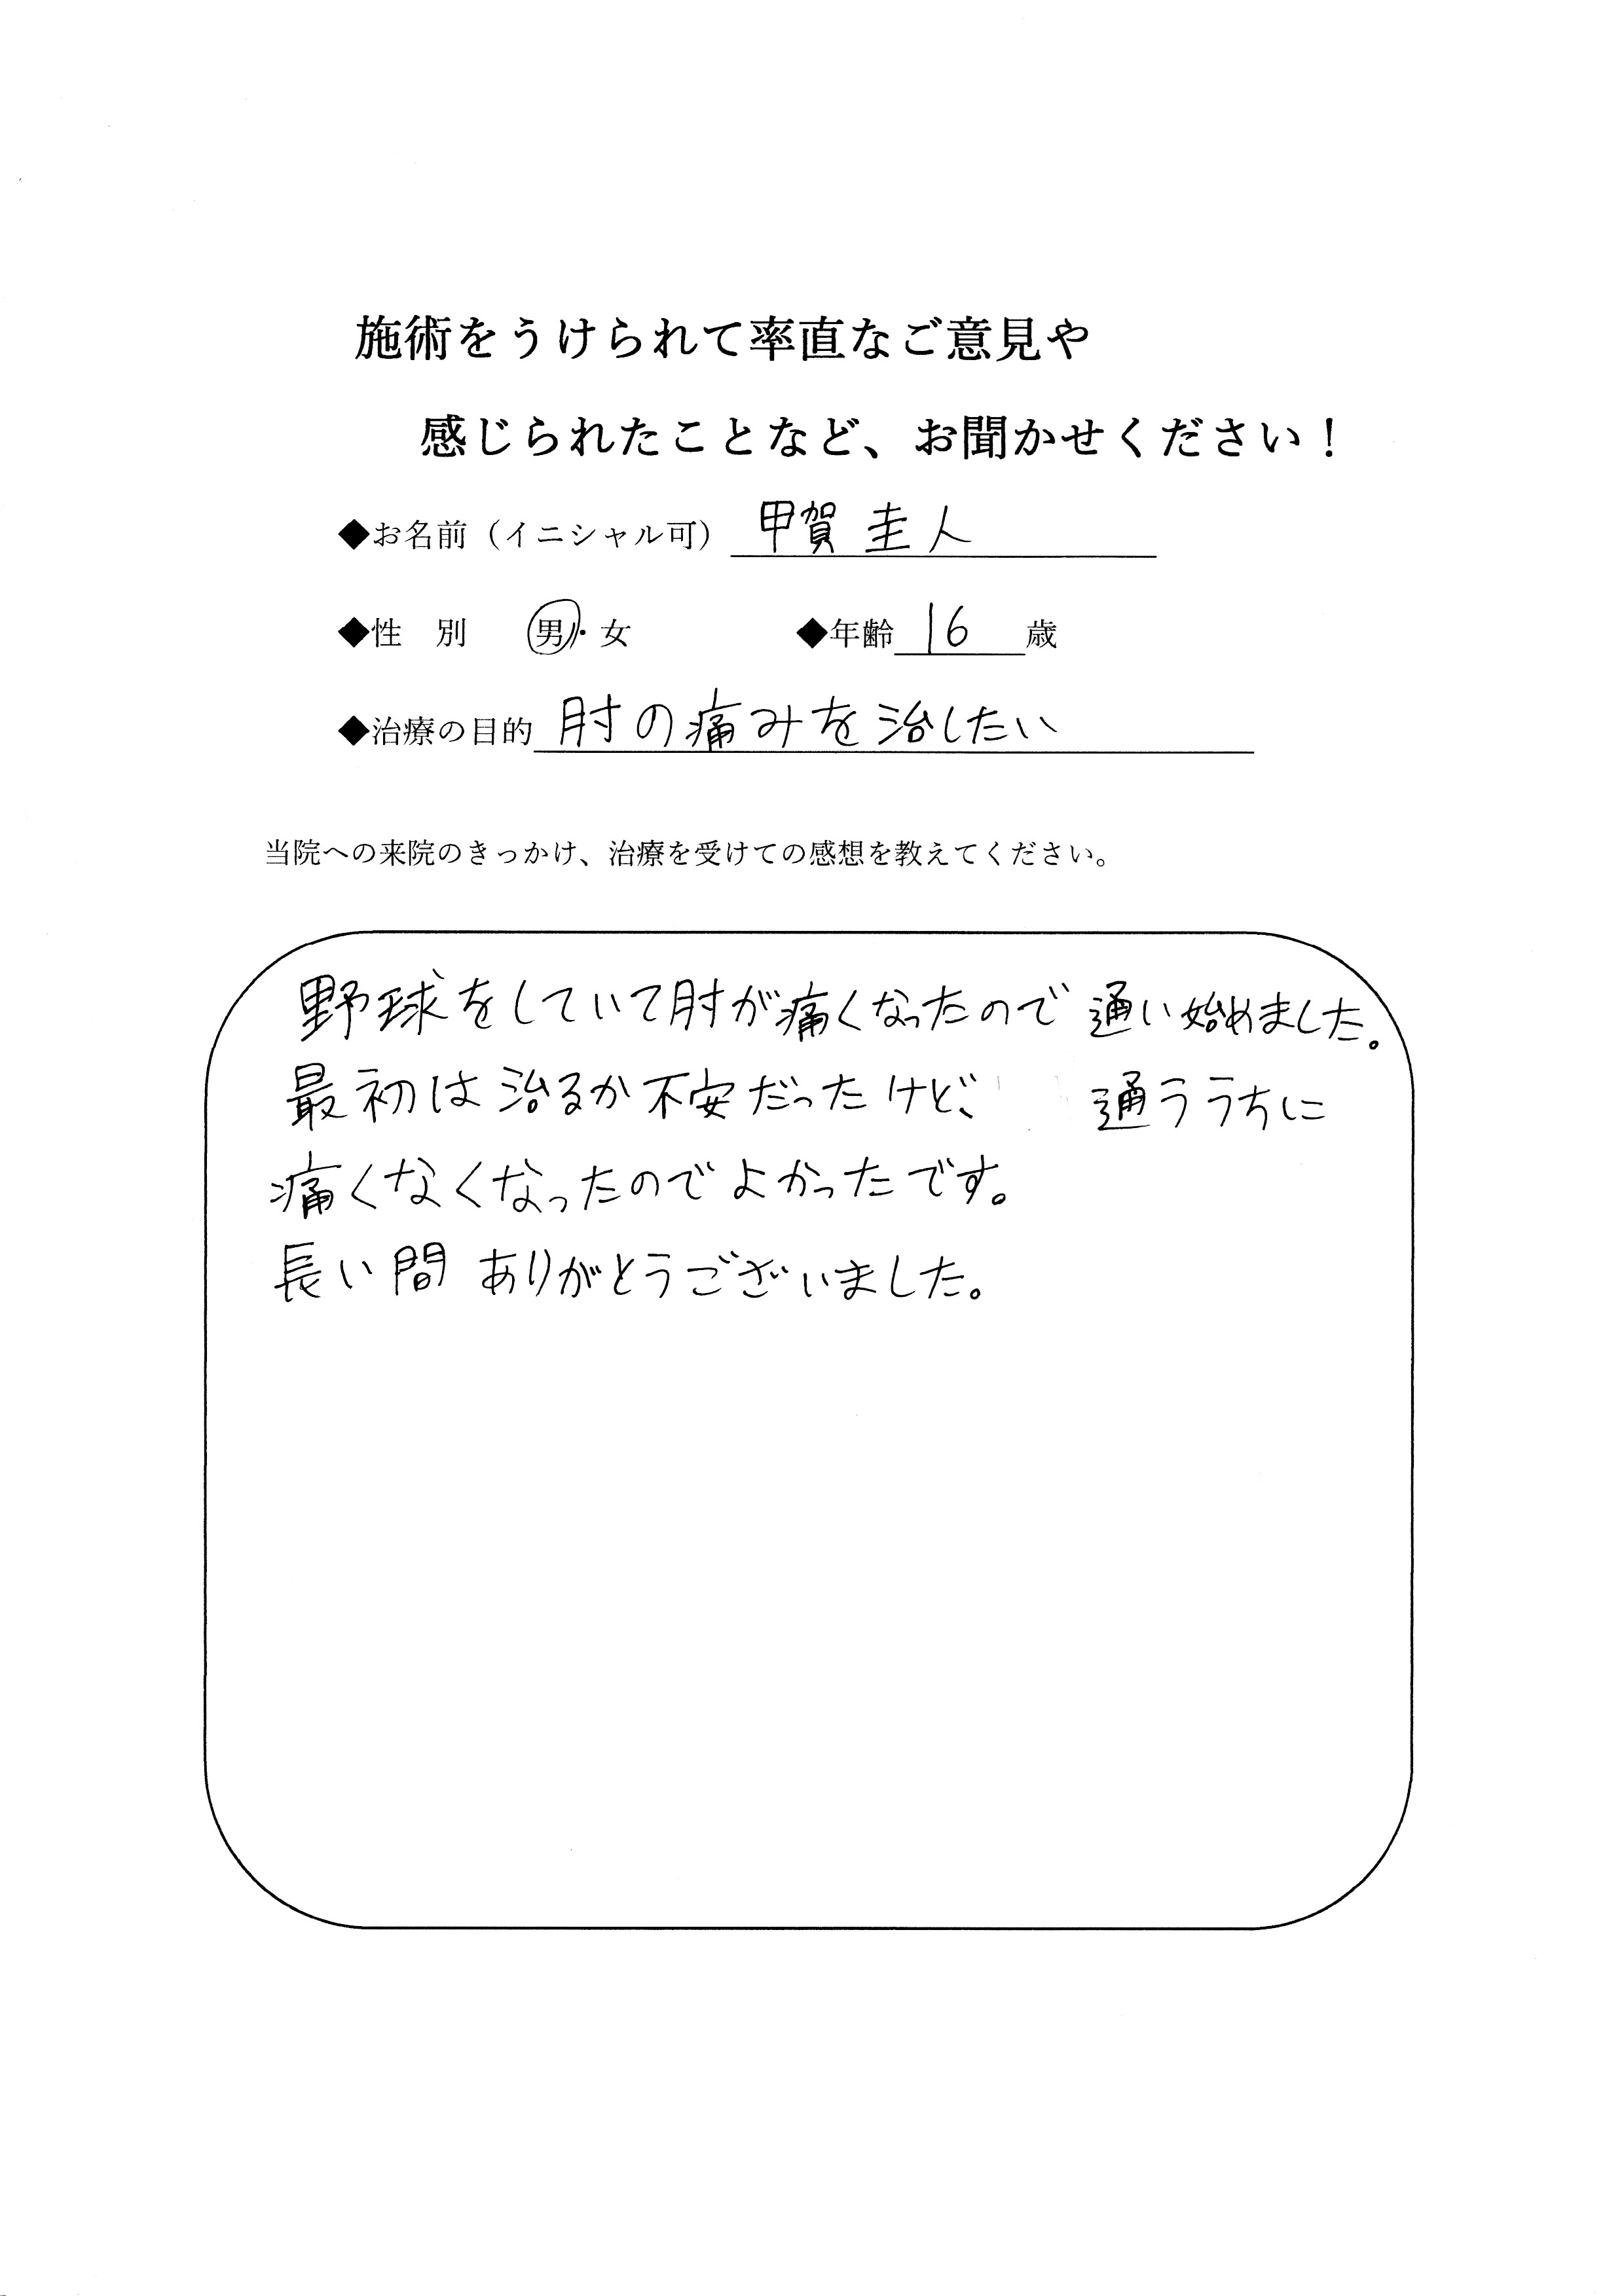 施術をうけられて率直なご意見や
感じられたことなど、お聞かせください！
◆お名前（イニシャル可） 甲賀 圭人
◆性　別　　男・女　　◆年齢 16 歳
◆治療の目的 肘の痛みを治したい
当院への来院のきっかけ、治療を受けての感想を教えてください。
野球をしていて肘が痛くなったので 通い始めました。
最初は治るか不安だったけど、 通ううちに
痛くなくなったのでよかったです。
長い間 ありがとうございました。